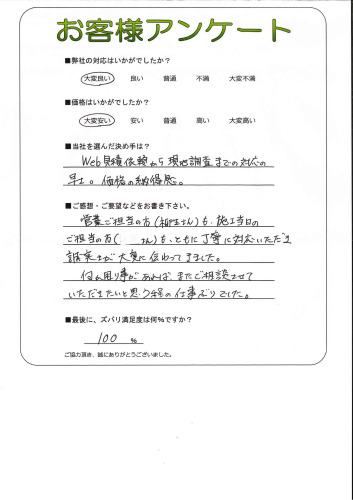 お客様アンケート
■弊社の対応はいかがでしたか？
大変良い 良い 普通 不満 大変不満
■価格はいかがでしたか？
大変安い 安い 普通 高い 大変高い
■当社を選んだ決め手は？
Web見積依頼から現地調査までの対応の
早さ。価格の納得感。
■ご感想・ご要望などをお書き下さい。
営業ご担当の方(柳生さん)も、施工当日の
ご担当の方( さん)も、ともに丁寧に対応いただき
誠実さが大変に伝わってきました。
何か困り事があれば、またご相談させて
いただきたいと思う程の仕事ぶりでした。
■最後に、ズバリ満足度は何%ですか？
100 %
ご協力頂き、誠にありがとうございました。